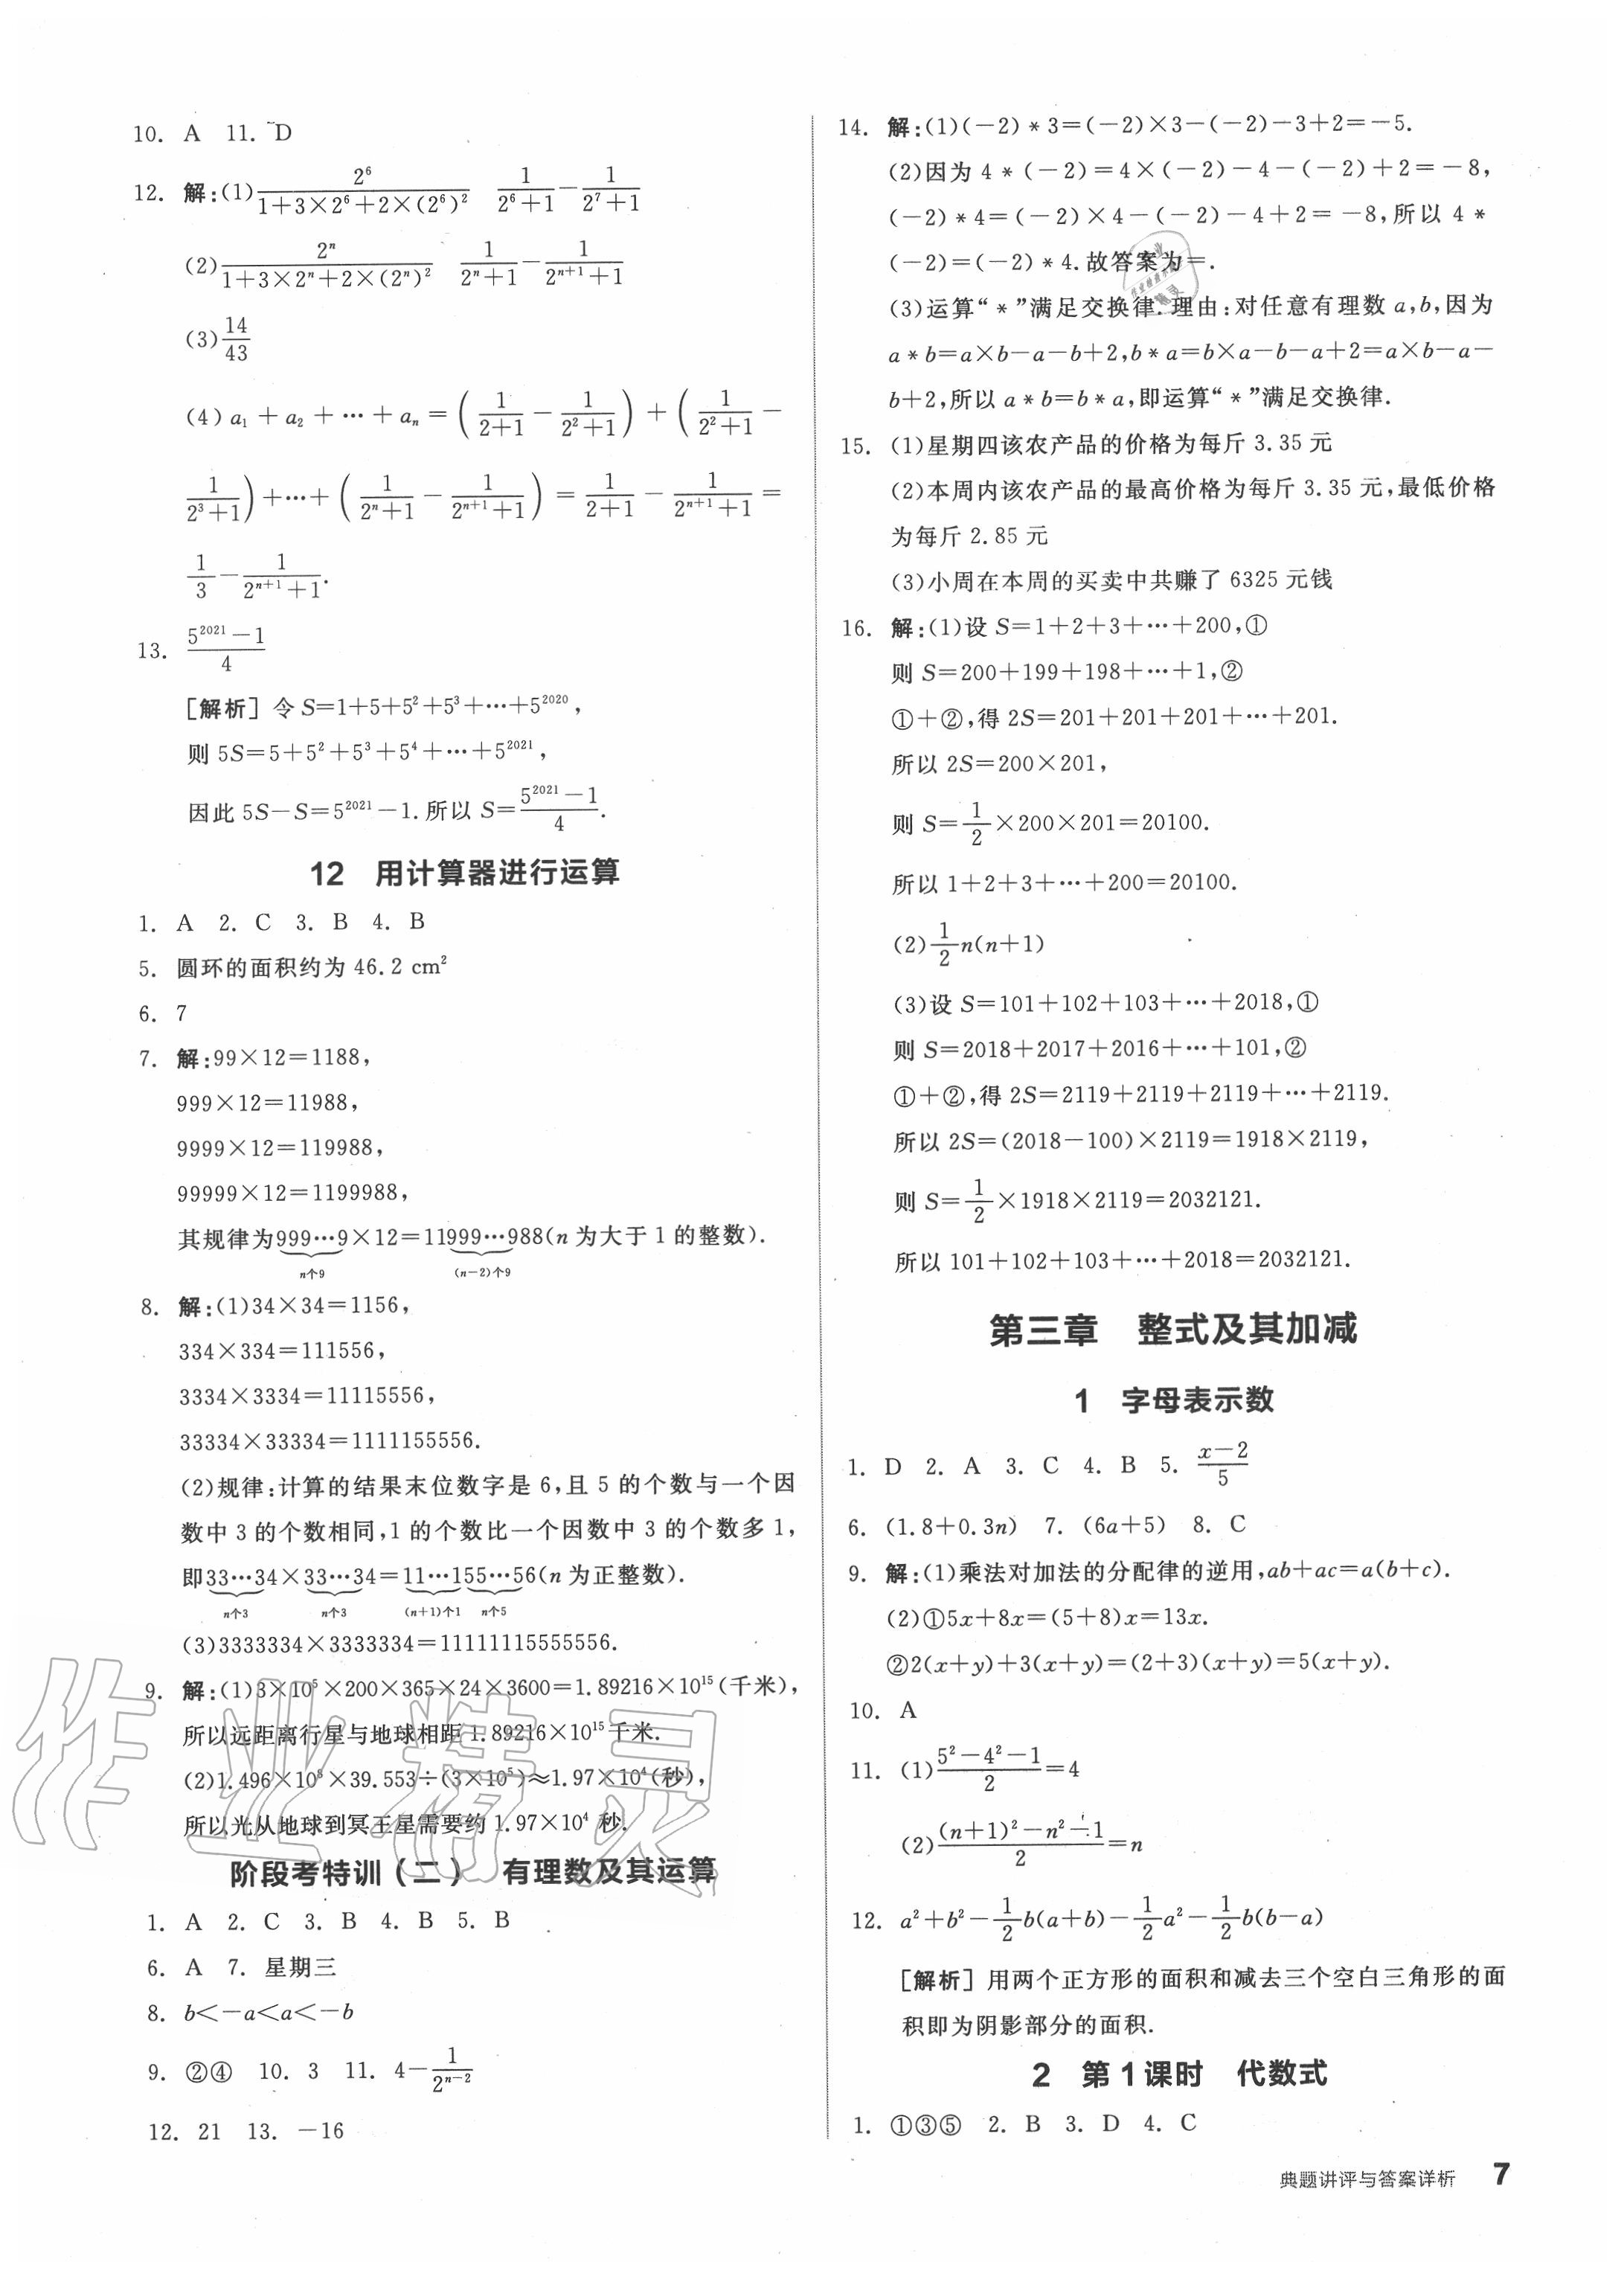 10. A 11. D
12. 解:(1)2⁶/(1+3×2⁶+2×(2⁶)²) 1/(2⁶+1)−1/(2⁷+1)
(2)2ⁿ/(1+3×2ⁿ+2×(2ⁿ)²) 1/(2ⁿ+1)−1/(2ⁿ⁺¹+1)
(3)14/43
(4)a₁+a₂+⋯+aₙ=(1/(2+1)−1/(2²+1))+(1/(2²+1)−
1/(2³+1))+⋯+(1/(2ⁿ+1)−1/(2ⁿ⁺¹+1))=1/(2+1)−1/(2ⁿ⁺¹+1)=
1/3−1/(2ⁿ⁺¹+1).
13. (5²⁰²¹−1)/4
[解析]令 S=1+5+5²+5³+⋯+5²⁰²⁰,
则 5S=5+5²+5³+5⁴+⋯+5²⁰²¹,
因此 5S−S=5²⁰²¹−1.所以 S=(5²⁰²¹−1)/4.
12 用计算器进行运算
1. A 2. C 3. B 4. B
5. 圆环的面积约为 46.2 cm²
6. 7
7. 解:99×12=1188,
999×12=11988,
9999×12=119988,
99999×12=1199988,
其规律为999⋯9×12=11999⋯988(n 为大于 1 的整数).
n个9 (n−2)个9
8. 解:(1)34×34=1156,
334×334=111556,
3334×3334=11115556,
33334×33334=1111155556.
(2)规律:计算的结果末位数字是 6,且 5 的个数与一个因
数中 3 的个数相同,1 的个数比一个因数中 3 的个数多 1,
即33⋯34×33⋯34=11⋯155⋯56(n 为正整数).
n个3 n个3 (n+1)个1 n个5
(3)3333334×3333334=11111115555556.
9. 解:(1)3×10⁵×200×365×24×3600=1.89216×10¹⁵(千米),
所以远距离行星与地球相距 1.89216×10¹⁵千米.
(2)1.496×10⁸×39.553÷(3×10⁵)≈1.97×10⁴(秒),
所以光从地球到冥王星需要约 1.97×10⁴ 秒.
阶段考特训(二) 有理数及其运算
1. A 2. C 3. B 4. B 5. B
6. A 7. 星期三
8. b<−a<a<−b
9. ②④ 10. 3 11. 4−1/2ⁿ⁻²
12. 21 13. −16
14. 解:(1)(−2)*3=(−2)×3−(−2)−3+2=−5.
(2)因为 4*(−2)=4×(−2)−4−(−2)+2=−8,
(−2)*4=(−2)×4−(−2)−4+2=−8,所以 4*
(−2)=(−2)*4.故答案为=.
(3)运算“*”满足交换律.理由:对任意有理数 a,b,因为
a*b=a×b−a−b+2,b*a=b×a−b−a+2=a×b−a−
b+2,所以 a*b=b*a,即运算“*”满足交换律.
15. (1)星期四该农产品的价格为每斤 3.35 元
(2)本周内该农产品的最高价格为每斤 3.35 元,最低价格
为每斤 2.85 元
(3)小周在本周的买卖中共赚了 6325 元钱
16. 解:(1)设 S=1+2+3+⋯+200,①
则 S=200+199+198+⋯+1,②
①+②,得 2S=201+201+201+⋯+201.
所以 2S=200×201,
则 S=1/2×200×201=20100.
所以 1+2+3+⋯+200=20100.
(2)1/2n(n+1)
(3)设 S=101+102+103+⋯+2018,①
则 S=2018+2017+2016+⋯+101,②
①+②,得 2S=2119+2119+2119+⋯+2119.
所以 2S=(2018−100)×2119=1918×2119,
则 S=1/2×1918×2119=2032121.
所以 101+102+103+⋯+2018=2032121.
第三章 整式及其加减
1 字母表示数
1. D 2. A 3. C 4. B 5. (x−2)/5
6. (1.8+0.3n) 7. (6a+5) 8. C
9. 解:(1)乘法对加法的分配律的逆用,ab+ac=a(b+c).
(2)①5x+8x=(5+8)x=13x.
②2(x+y)+3(x+y)=(2+3)(x+y)=5(x+y).
10. A
11. (1)(5²−4²−1)/2=4
(2)((n+1)²−n²−1)/2=n
12. a²+b²−1/2b(a+b)−1/2a²−1/2b(b−a)
[解析]用两个正方形的面积和减去三个空白三角形的面
积即为阴影部分的面积.
2 第1课时 代数式
1. ①③⑤ 2. B 3. D 4. C
典题讲评与答案详析 7
作业精灵